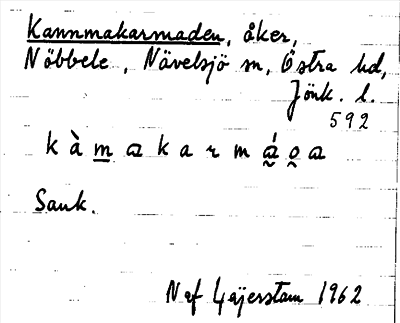 Kannmakarmaden, åker,
Nöbbele, Nävelsjö sn, Östra hd,
Jönk. l.
592
k à m a k a r m á o a
Sank.
N af Geijerstam 1962